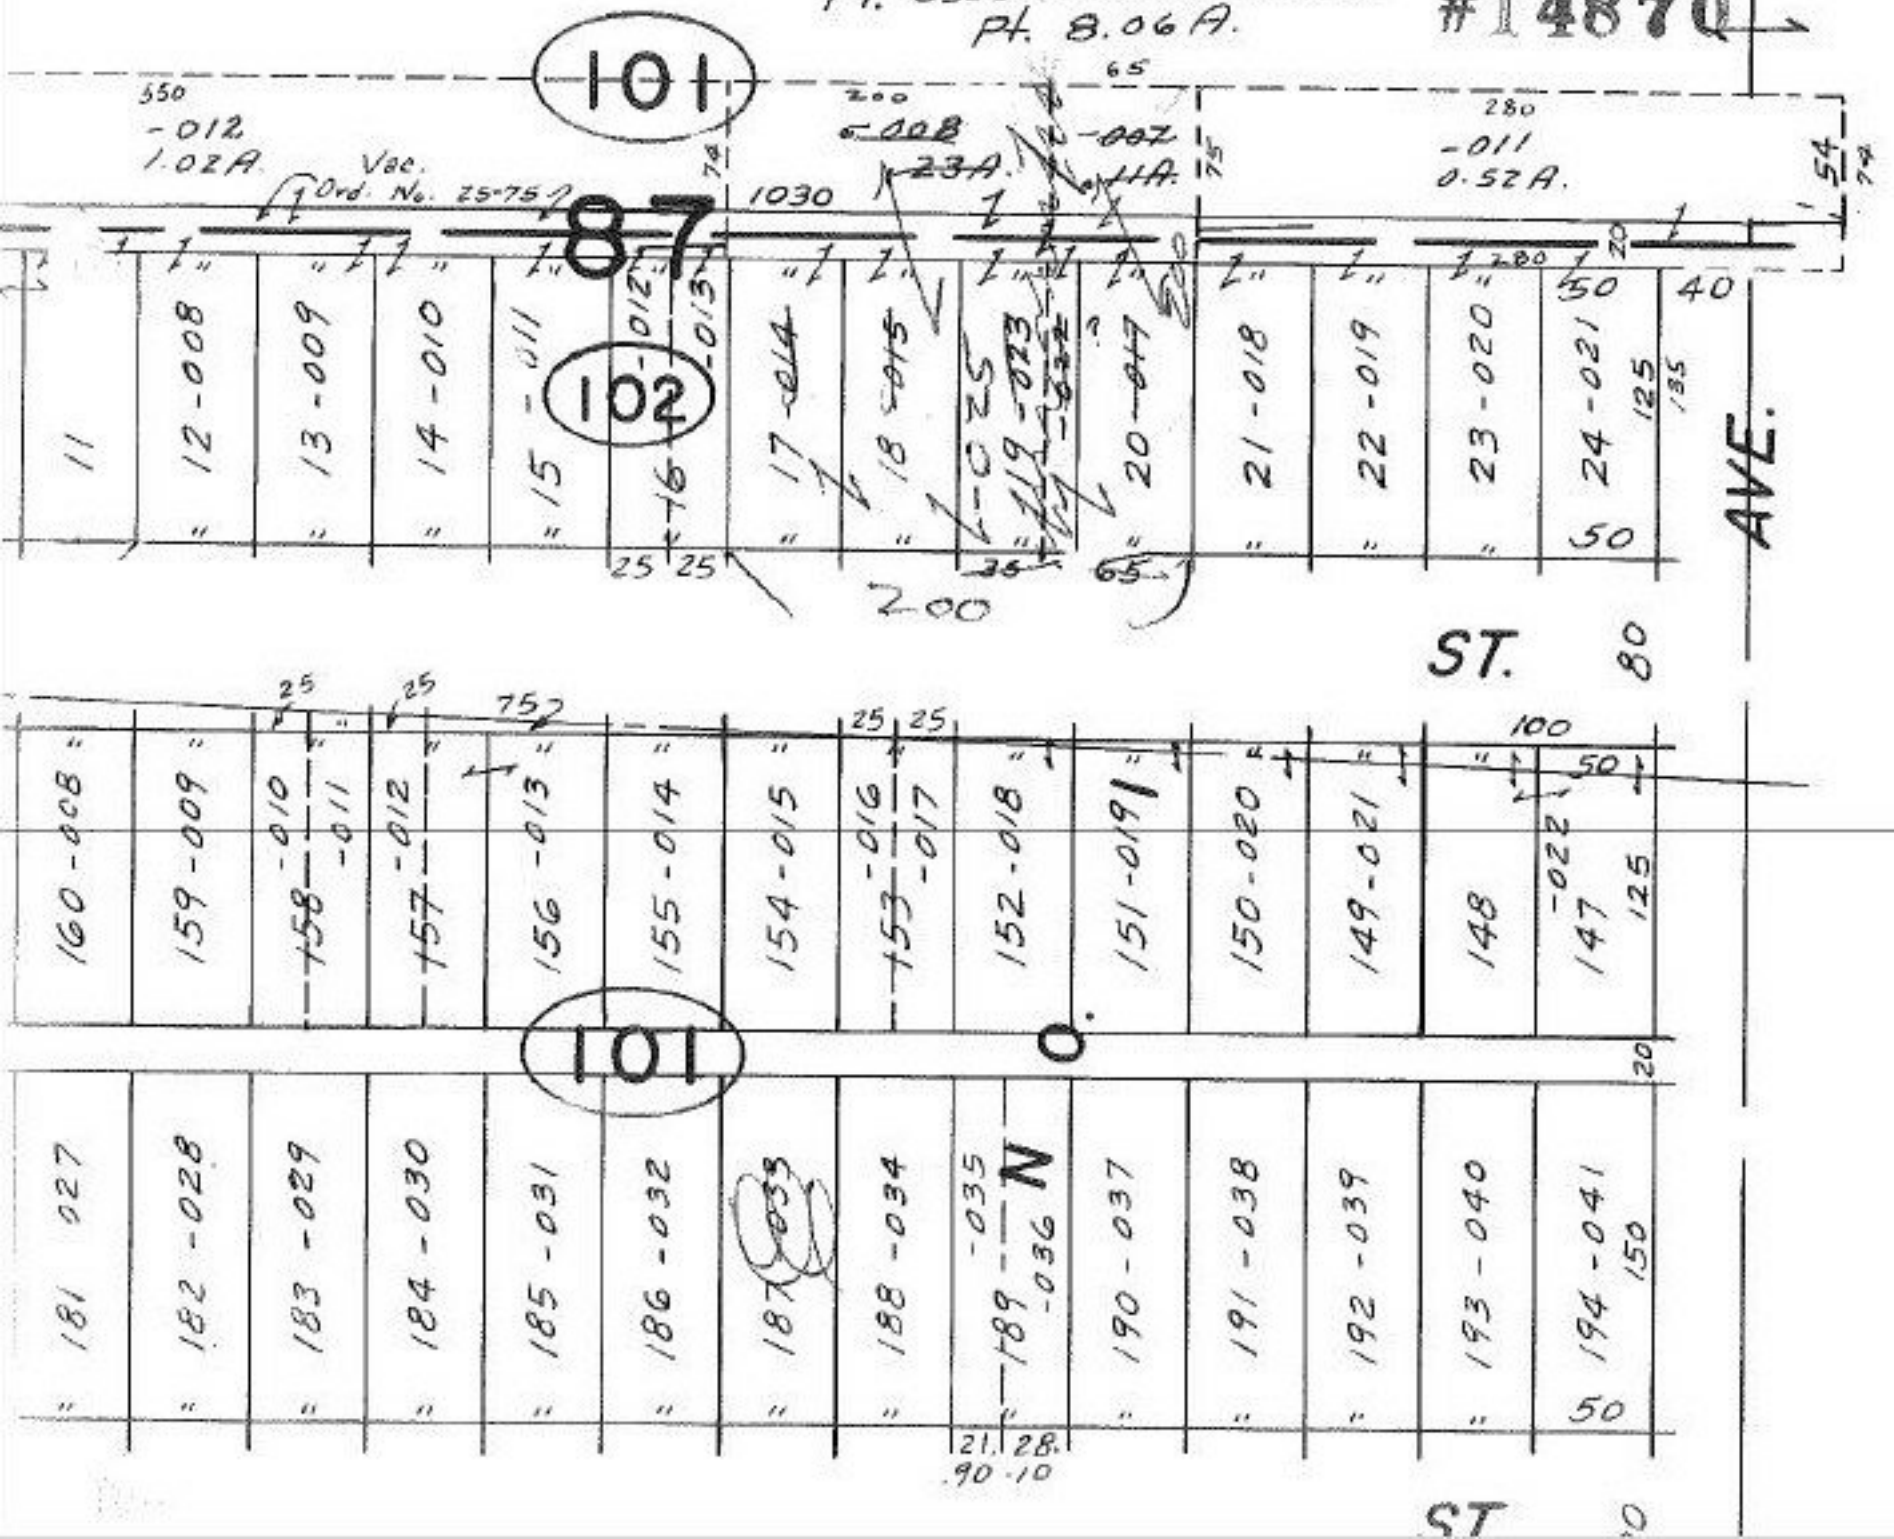 Pt. 8.06 A.
#14870
101
65
550
-012
1.02A.
Vac.
Ord. No. 25-75
74
200
-008
.23A.
-007
.11A.
75
280
-011
0.52A.
54
74
87
1030
20
280
50
40
11
12 -008
13 -009
14 -010
15 -011
-012
16
-013
102
17 -014
18 -015
-025
19 -023
-022
20 -017
200
21 -018
22 -019
23 -020
24 -021
125
135
50
25 25
35
65
200
AVE.
ST.
80
25
25
75
25 25
100
50
160 -008
159 -009
-010
158
-011
-012
157
156 -013
155 -014
154 -015
-016
153
-017
152 -018
151 -019
150 -020
149 -021
148
-022
147
125
101
O.
20
181 027
182 -028
183 -029
184 -030
185 -031
186 -032
187 -033
188 -034
-035
189
-036
N
190 -037
191 -038
192 -039
193 -040
194 -041
150
50
21. 28.
90 10
ST